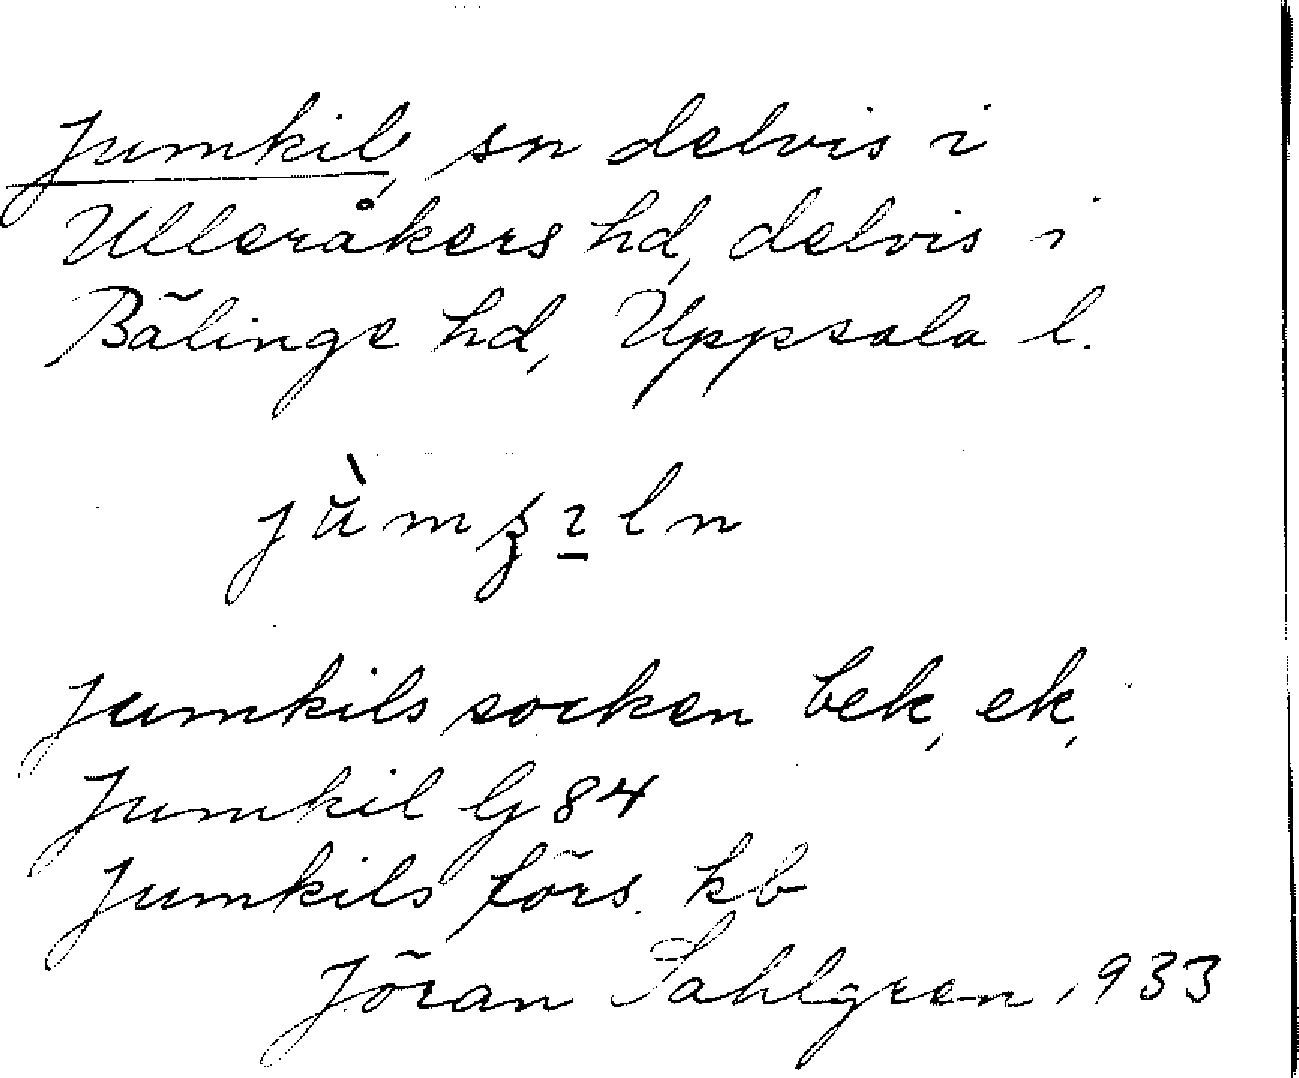 Jumkil, sn delvis i
Ulleråkers hd, delvis i
Bälinge hd, Uppsala l.
Jumkils socken bek, ek,
Jumkil G 84
Jumkils förs. kb
Jöran Sahlgren 1933